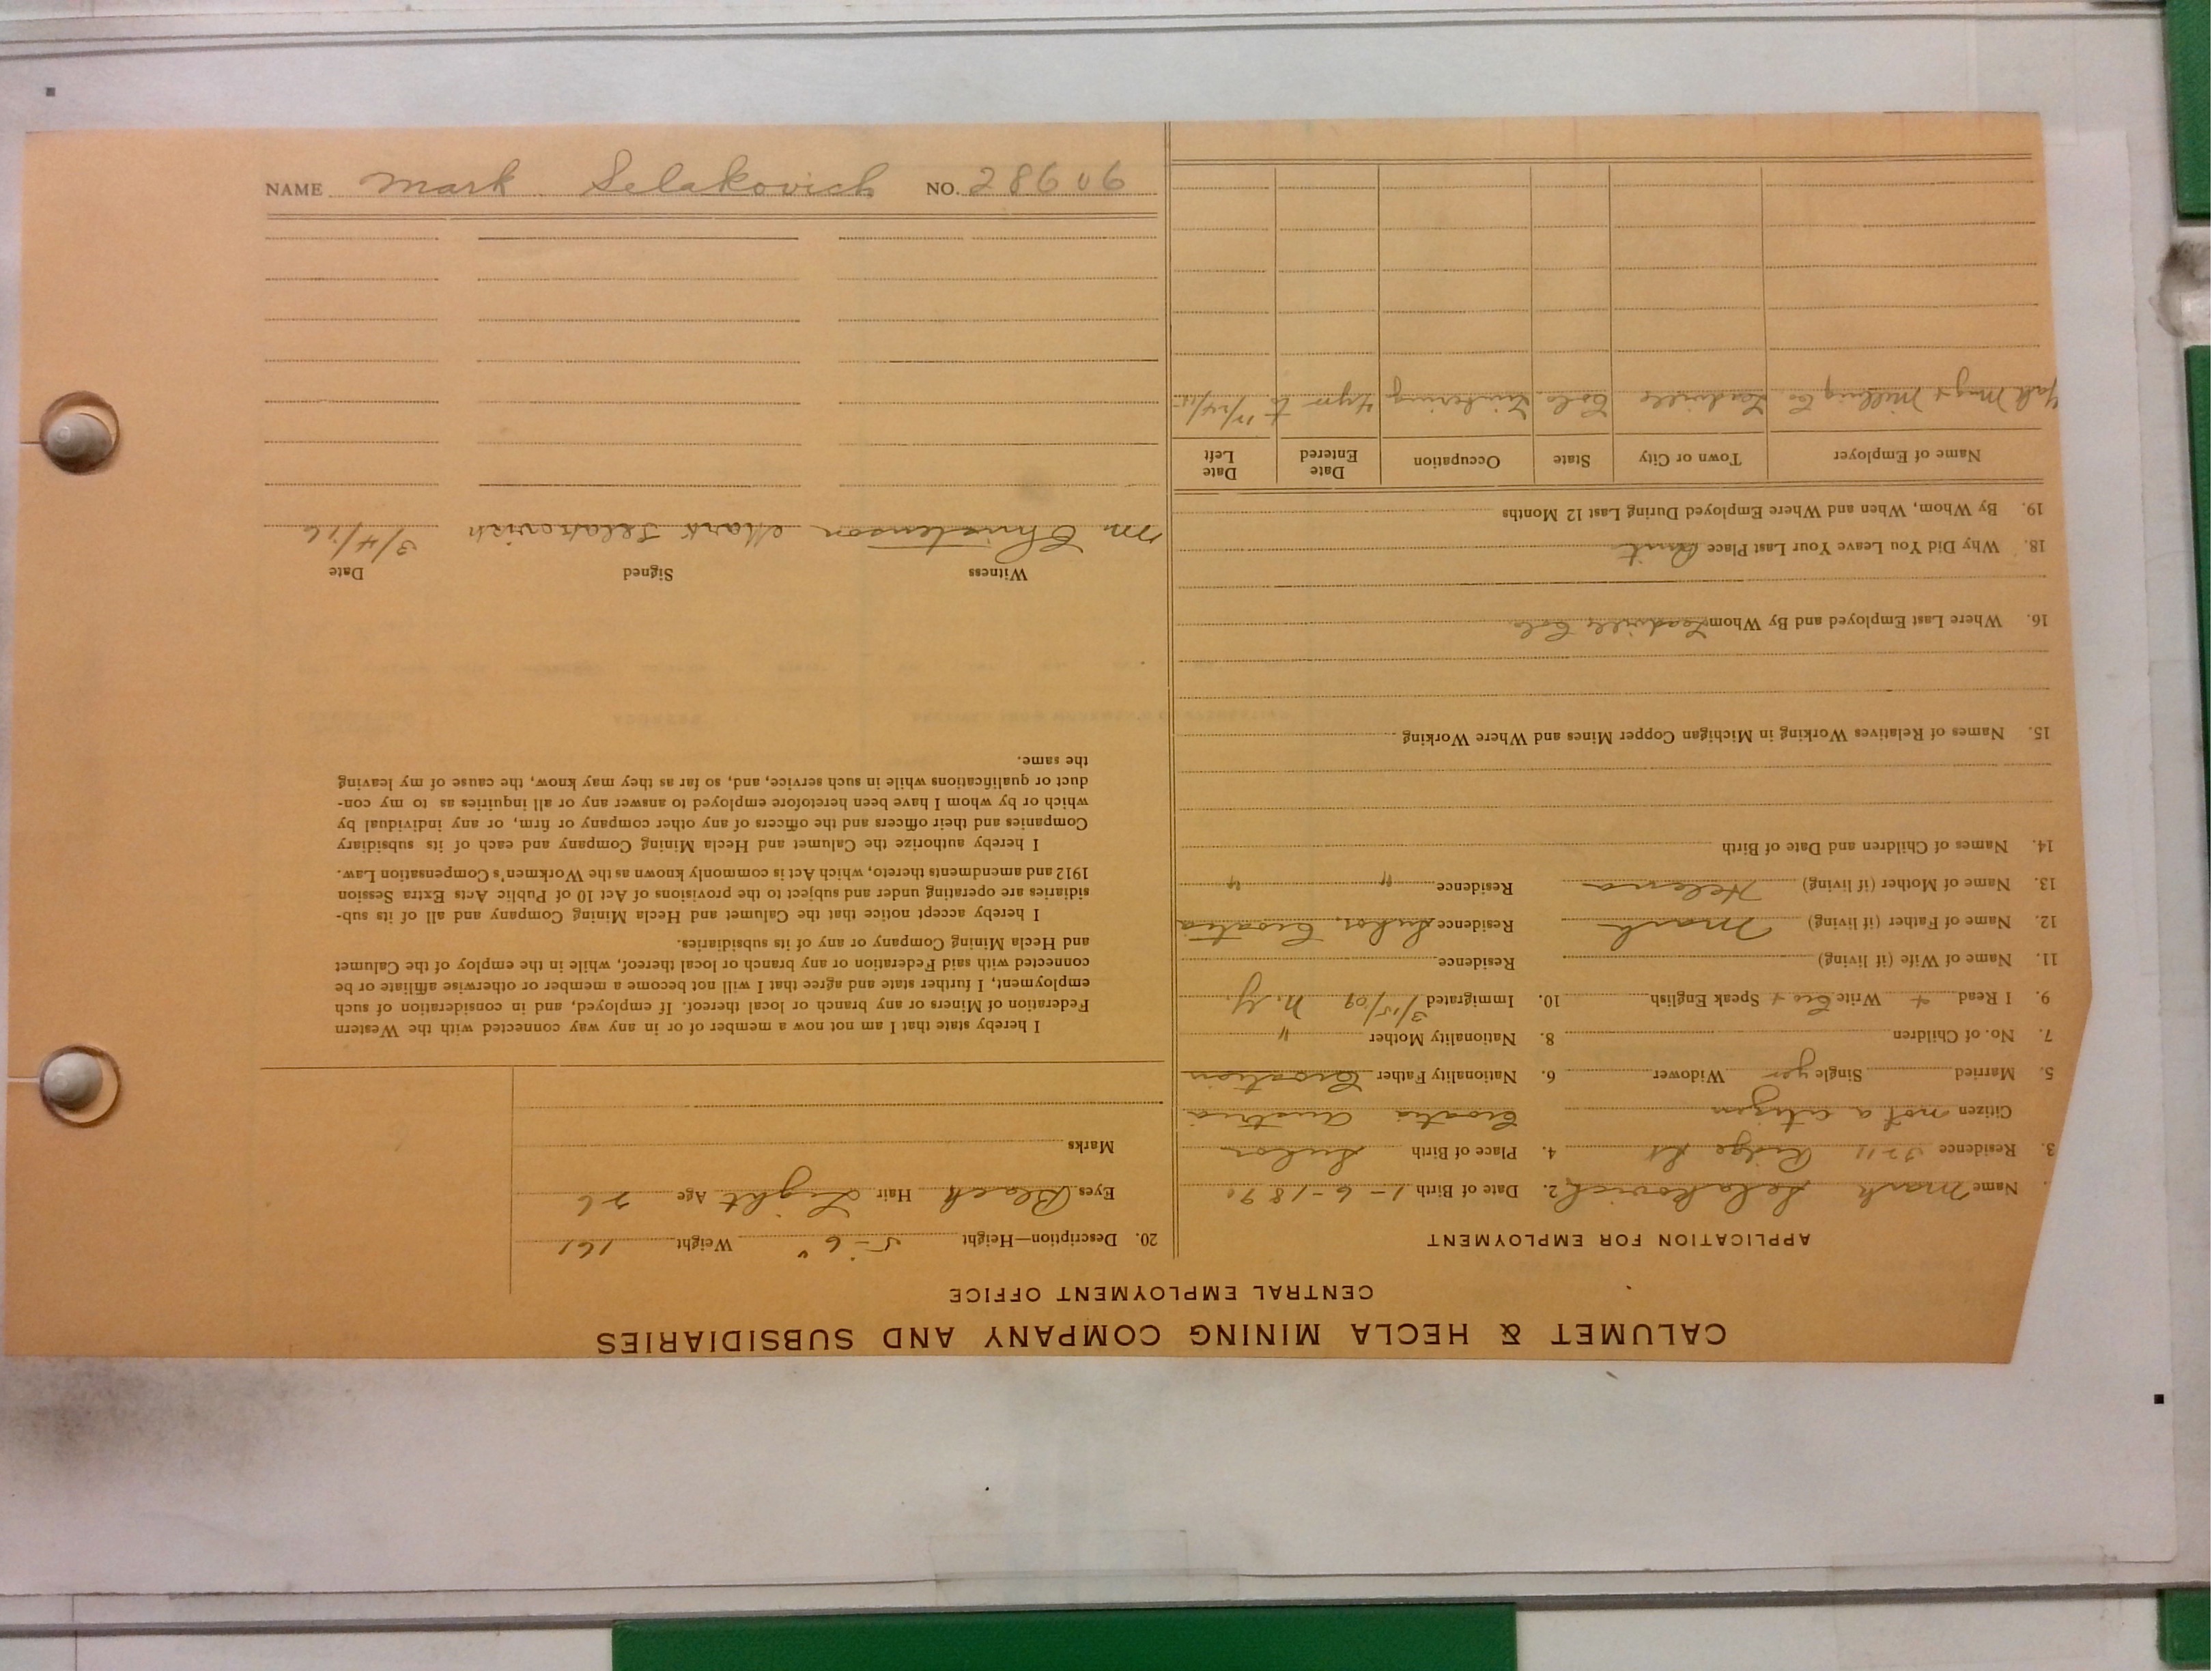 NAME Mark Selakovich NO. 28606
CALUMET & HECLA MINING COMPANY AND SUBSIDIARIES
CENTRAL EMPLOYMENT OFFICE
APPLICATION FOR EMPLOYMENT
Name Mark Selakovich 2. Date of Birth 1-6-1890
3. Residence Ridge St 4. Place of Birth
Citizen not a citizen Croatia Austria
5. Married Single yes Widower 6. Nationality Father Croatian
7. No. of Children 8. Nationality Mother "
9. I Read + Write Cro + Speak English 10. Immigrated 3/15/09 N.Y.
11. Name of Wife (if living) Residence
12. Name of Father (if living) Mark Residence Croatia
13. Name of Mother (if living) Helena Residence " "
14. Names of Children and Date of Birth
15. Names of Relatives Working in Michigan Copper Mines and Where Working
16. Where Last Employed and By Whom Leadville Colo
18. Why Did You Leave Your Last Place Quit
19. By Whom, When and Where Employed During Last 12 Months
Name of Employer Town or City State Occupation Date Entered Date Left
Milling Co Leadville Colo Timbering 4 yrs to
20. Description—Height 5-6" Weight 161
Eyes Black Hair Light Age 26
Marks
I hereby state that I am not now a member of or in any way connected with the Western
Federation of Miners or any branch or local thereof. If employed, and in consideration of such
employment, I further state and agree that I will not become a member or otherwise affiliate or be
connected with said Federation or any branch or local thereof, while in the employ of the Calumet
and Hecla Mining Company or any of its subsidiaries.
I hereby accept notice that the Calumet and Hecla Mining Company and all of its sub-
sidiaries are operating under and subject to the provisions of Act 10 of Public Acts Extra Session
1912 and amendments thereto, which Act is commonly known as the Workmen's Compensation Law.
I hereby authorize the Calumet and Hecla Mining Company and each of its subsidiary
Companies and their officers and the officers of any other company or firm, or any individual by
which or by whom I have been heretofore employed to answer any or all inquiries as to my con-
duct or qualifications while in such service, and, so far as they may know, the cause of my leaving
the same.
Witness Signed Date
M Christenson Mark Selakovich 3/4/16